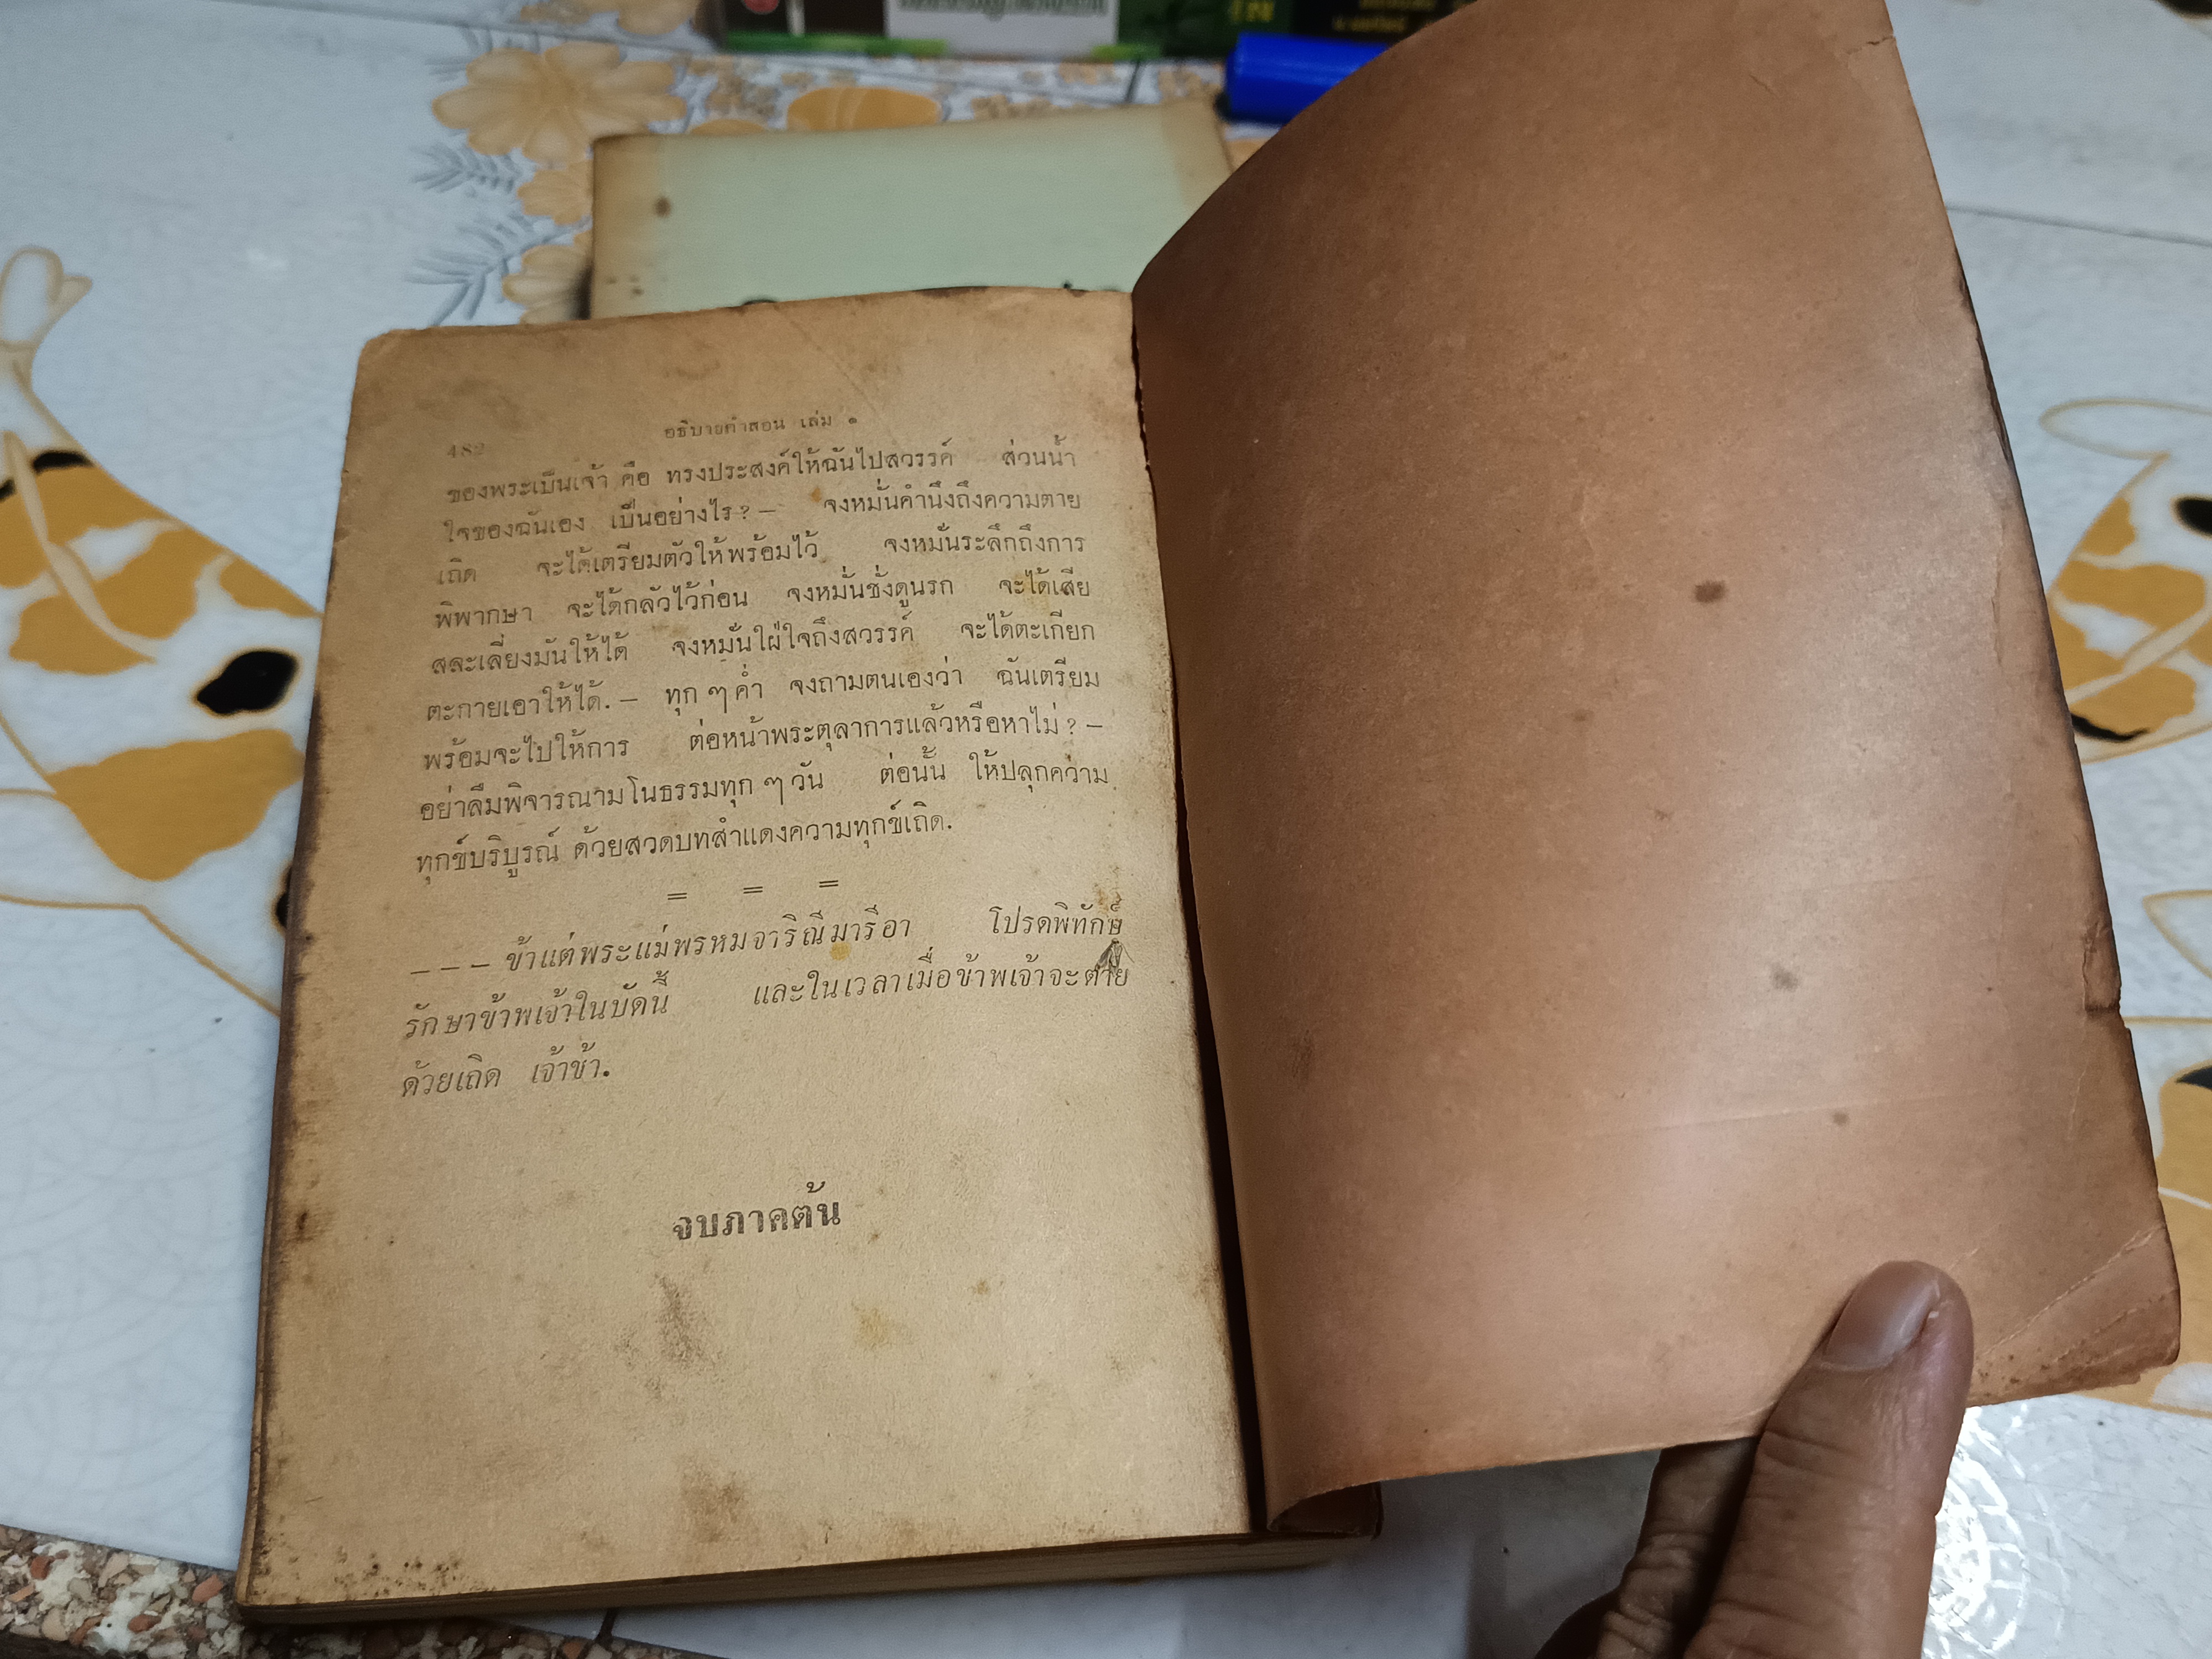 อธิบายคำสอน เล่ม ๑
482
ของพระเป็นเจ้า คือ ทรงประสงค์ให้ฉันไปสวรรค์ ส่วนน้ำ
ใจของฉันเอง เป็นอย่างไร ? — จงหมั่นคำนึงถึงความตาย
เถิด จะได้เตรียมตัวให้พร้อมไว้ จงหมั่นระลึกถึงการ
พิพากษา จะได้กลัวไว้ก่อน จงหมั่นชั่งดูนรก จะได้เสีย
สละเลี่ยงมันให้ได้ จงหมั่นใฝ่ใจถึงสวรรค์ จะได้ตะเกียก
ตะกายเอาให้ได้. — ทุก ๆ ค่ำ จงถามตนเองว่า ฉันเตรียม
พร้อมจะไปให้การ ต่อหน้าพระตุลาการแล้วหรือหาไม่ ? —
อย่าลืมพิจารณามโนธรรมทุก ๆ วัน ต่อนั้น ให้ปลุกความ
ทุกข์บริบูรณ์ ด้วยสวดบทสำแดงความทุกข์เถิด.
= = =
— — — ข้าแต่พระแม่พรหมจาริณีมารีอา โปรดพิทักษ์
รักษาข้าพเจ้าในบัดนี้ และในเวลาเมื่อข้าพเจ้าจะตาย
ด้วยเถิด เจ้าข้า.
จบภาคต้น